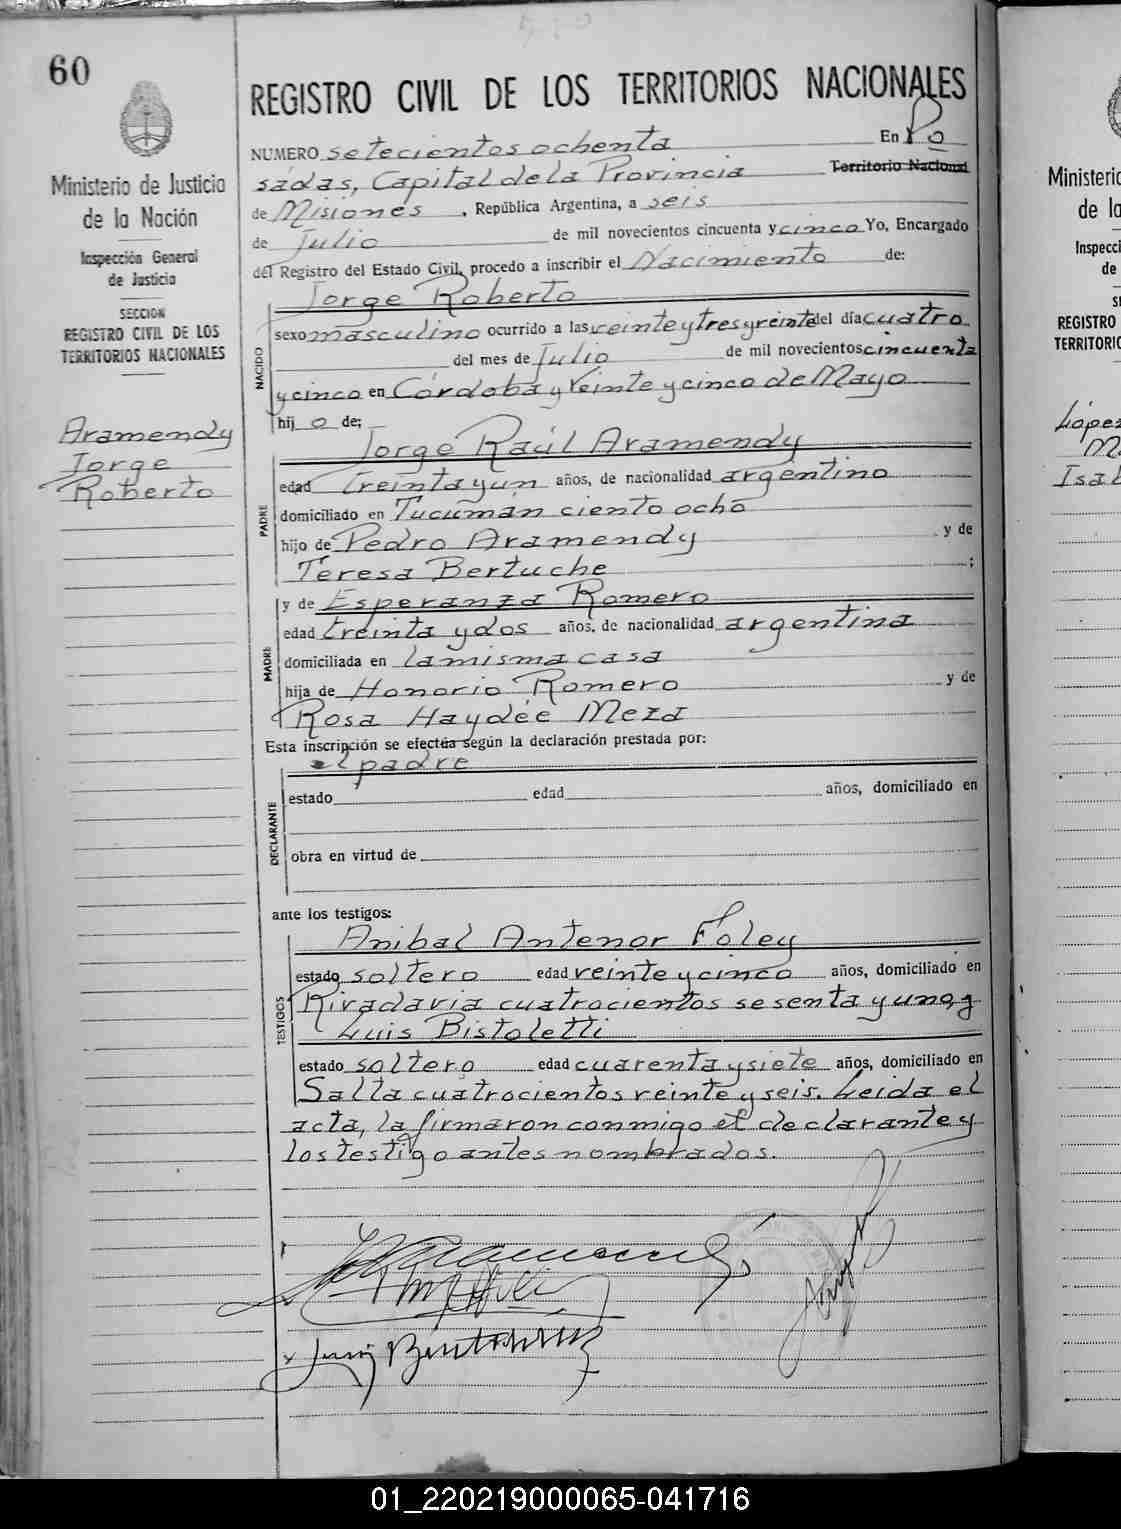 60
Ministerio de Justicia
de la Nación
Inspección General
de Justicia
SECCION
REGISTRO CIVIL DE LOS
TERRITORIOS NACIONALES
Aramendy
Jorge
Roberto
REGISTRO CIVIL DE LOS TERRITORIOS NACIONALES
NUMERO setecientos ochenta En Po
sadas, Capital de la Provincia Territorio Nacional
de Misiones, República Argentina, a seis
de Julio de mil novecientos cincuenta y cinco Yo, Encargado
del Registro del Estado Civil, procedo a inscribir el Nacimiento de:
Jorge Roberto
NACIDO
sexo masculino ocurrido a las veinte y tres y veinte del día cuatro
del mes de Julio de mil novecientos cincuenta
y cinco en Córdoba y Veinte y cinco de Mayo
hij o de;
Jorge Raúl Aramendy
PADRE
edad treinta y un años, de nacionalidad argentino
domiciliado en Tucumán ciento ocho
hijo de Pedro Aramendy y de
Teresa Bertuche ;
y de Esperanza Romero
MADRE
edad treinta y dos años, de nacionalidad argentina
domiciliada en la misma casa
hija de Honorio Romero y de
Rosa Haydée Meza
Esta inscripción se efectúa según la declaración prestada por:
el padre
DECLARANTE
estado edad años, domiciliado en
obra en virtud de
ante los testigos:
Anibal Antenor Foley
TESTIGOS
estado soltero edad veinte y cinco años, domiciliado en
Rivadavia cuatrocientos sesenta y uno, y
Luis Bistoletti
estado soltero edad cuarenta y siete años, domiciliado en
Salta cuatrocientos veinte y seis. Leida el
acta, la firmaron conmigo el declarante y
los testigo antes nombrados.
Ministerio
de la
Inspecci
de
REGISTRO
TERRITORIO
López
Isab
01_220219000065-041716